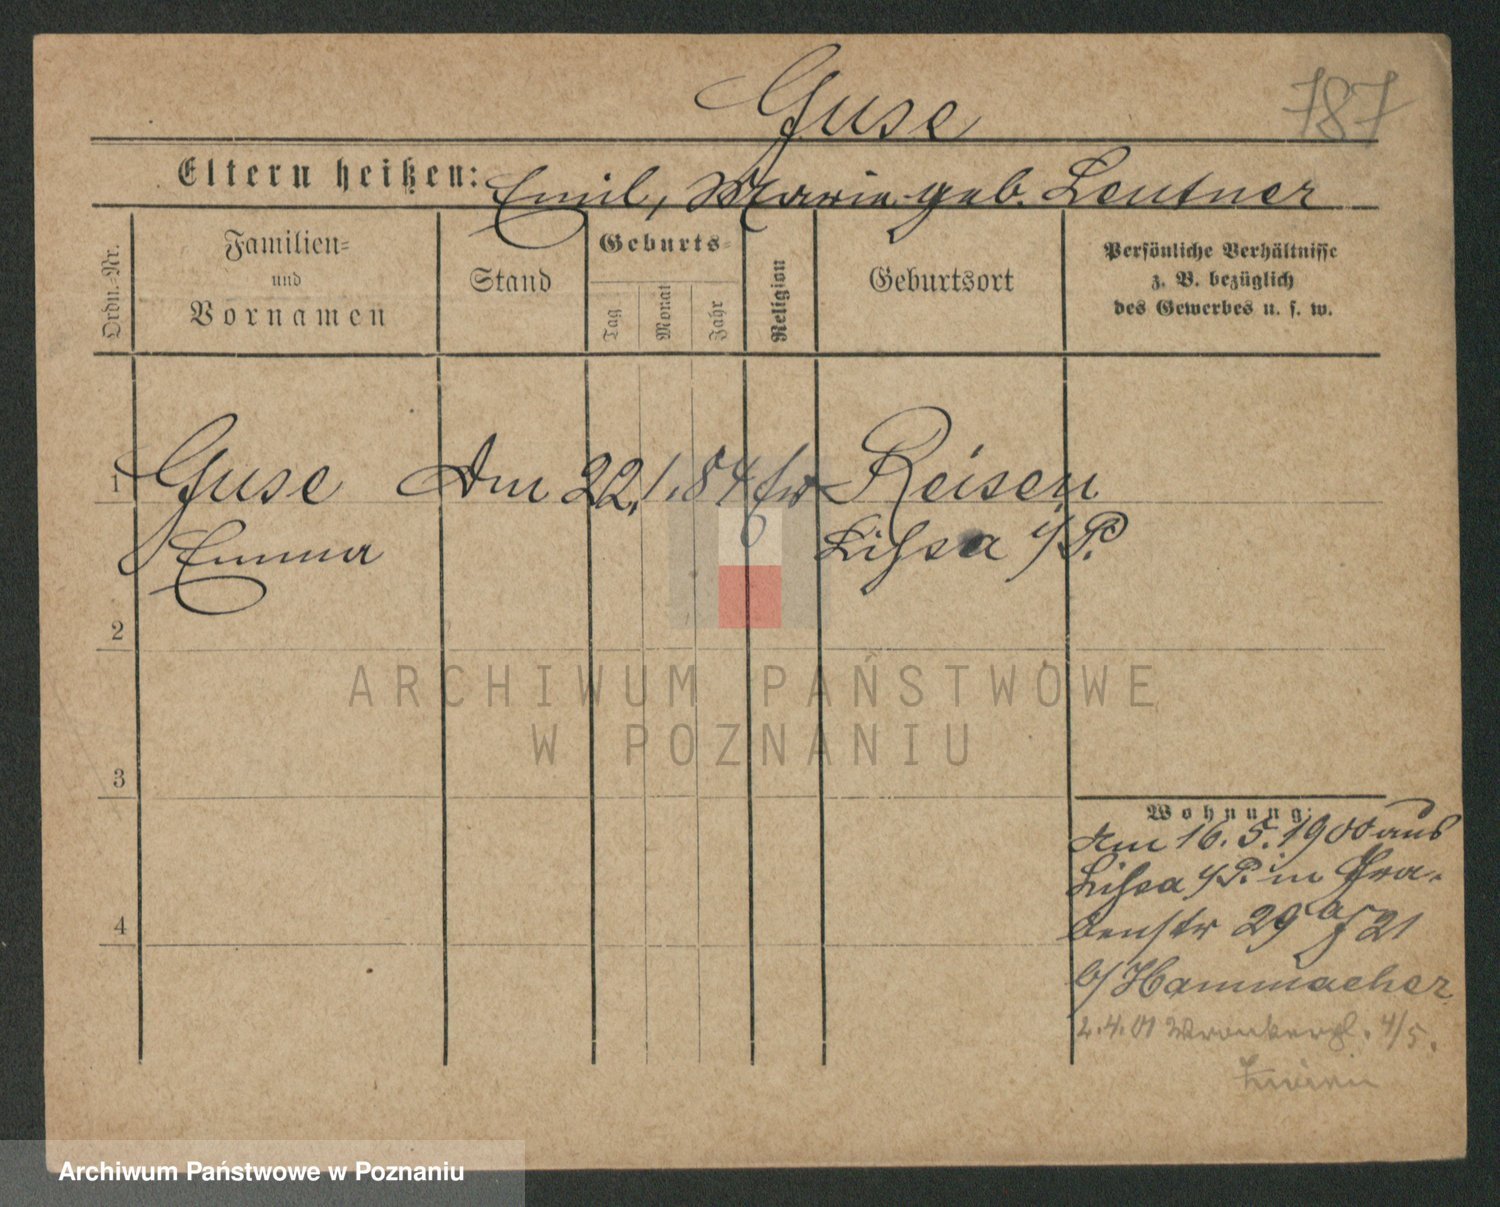 Guse
787
Eltern heißen: Emil, Marie geb. Leutner
Ordn.-Nr.
Familien-
und
Vornamen
Stand
Geburts-
Tag
Monat
Jahr
Religion
Geburtsort
Persönliche Verhältnisse
z. B. bezüglich
des Gewerbes u. s. w.
1 Guse 22. 1. 84 Reisen
Emma Lissa i/P.
2
3
4
Wohnung:
Am 16. 5. 1900 aus
Lissa i/P. in Gra-
benstr 29 21
b/ Hammacher
2. 4. 01 Wronkerpl. 4/5.
ARCHIWUM PAŃSTWOWE
W POZNANIU
Archiwum Państwowe w Poznaniu